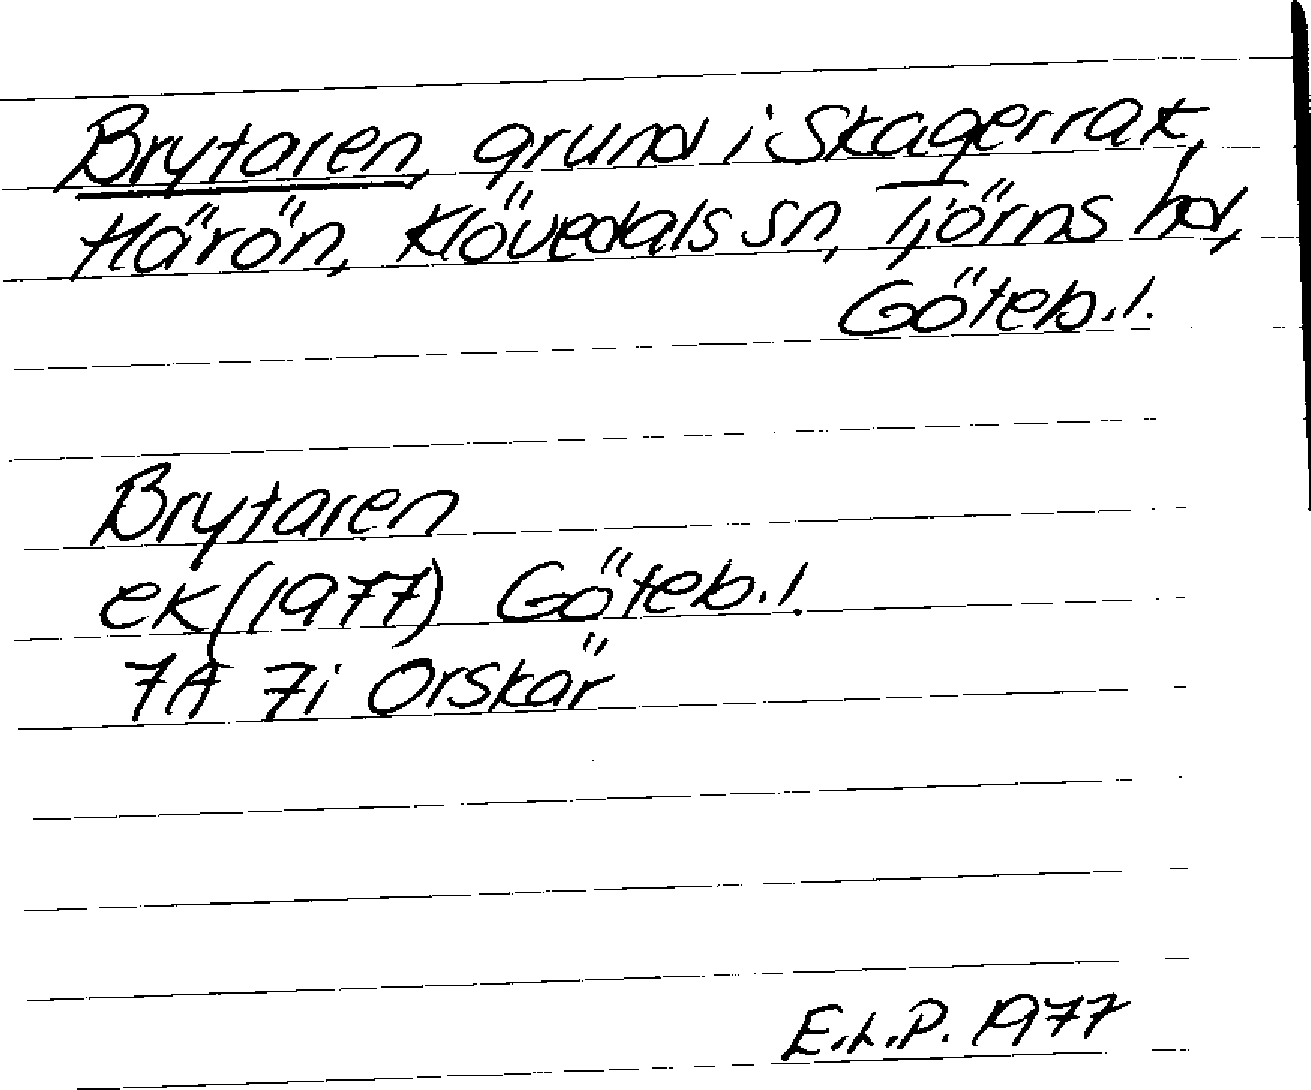 Brytaren, grund i Skagerrak,
Härön, Klövedals sn, Tjörns hd,
Göteb.l.
Brytaren
ek (1977) Göteb.l.
7A 7i Orskär
E.L.P. 1977